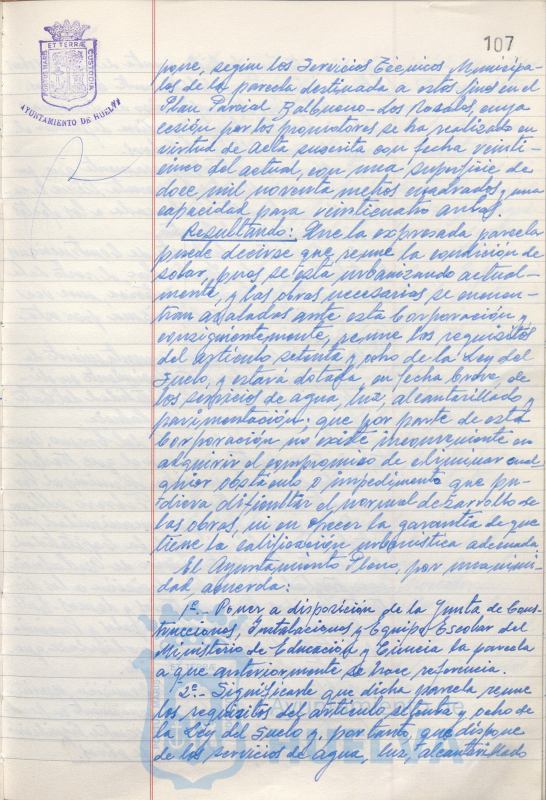 107
PORTUS MARIS
ET TERRÆ
CUSTODIA
AYUNTAMIENTO DE HUELVA
pone, según los Servicios Técnicos Municipa-
les de la parcela destinada a estos fines en el
Plan Parcial Balbueno-Los Rosales, cuya
cesión por los promotores se ha realizado en
virtud de acta suscrita con fecha veinti-
cinco del actual, con una superficie de
doce mil noventa metros cuadrados y una
capacidad para veinticuatro aulas.
Resultando: Que la expresada parcela
puede decirse que reune la condición de
solar, pues se está urbanizando actual-
mente, y las obras necesarias se encuen-
tran avaladas ante esta Corporación y
consiguientemente, reune los requisitos
del artículo setenta y ocho de la Ley del
Suelo, y estará dotada, en fecha breve, de
los servicios de agua, luz, alcantarillado y
pavimentación; que por parte de esta
Corporación no existe inconveniente en
adquirir el compromiso de eliminar cual-
quier obstáculo o impedimento que pu-
diera dificultar el normal desarrollo de
las obras, ni en ofrecer la garantía de que
tiene la calificación urbanística adecuada
El Ayuntamiento Pleno, por unanimi-
dad, acuerda:
1º.- Poner a disposición de la Junta de Cons-
trucciones, Instalaciones y Equipo Escolar del
Ministerio de Educación y Ciencia la parcela
a que anteriormente se hace referencia.
2º.- Significarle que dicha parcela reune
los requisitos del artículo setenta y ocho de
la Ley del Suelo y, por tanto, que dispone
de los servicios de agua, luz, alcantarillado